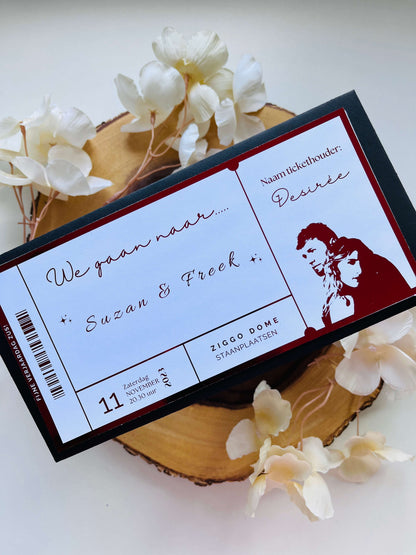 FIJNE VERJAARDAG ZUS!
We gaan naar.....
Suzan & Freek
11
Zaterdag
NOVEMBER
20.30 uur
2023
ZIGGO DOME
STAANPLAATSEN
Naam tickethouder:
Desirée